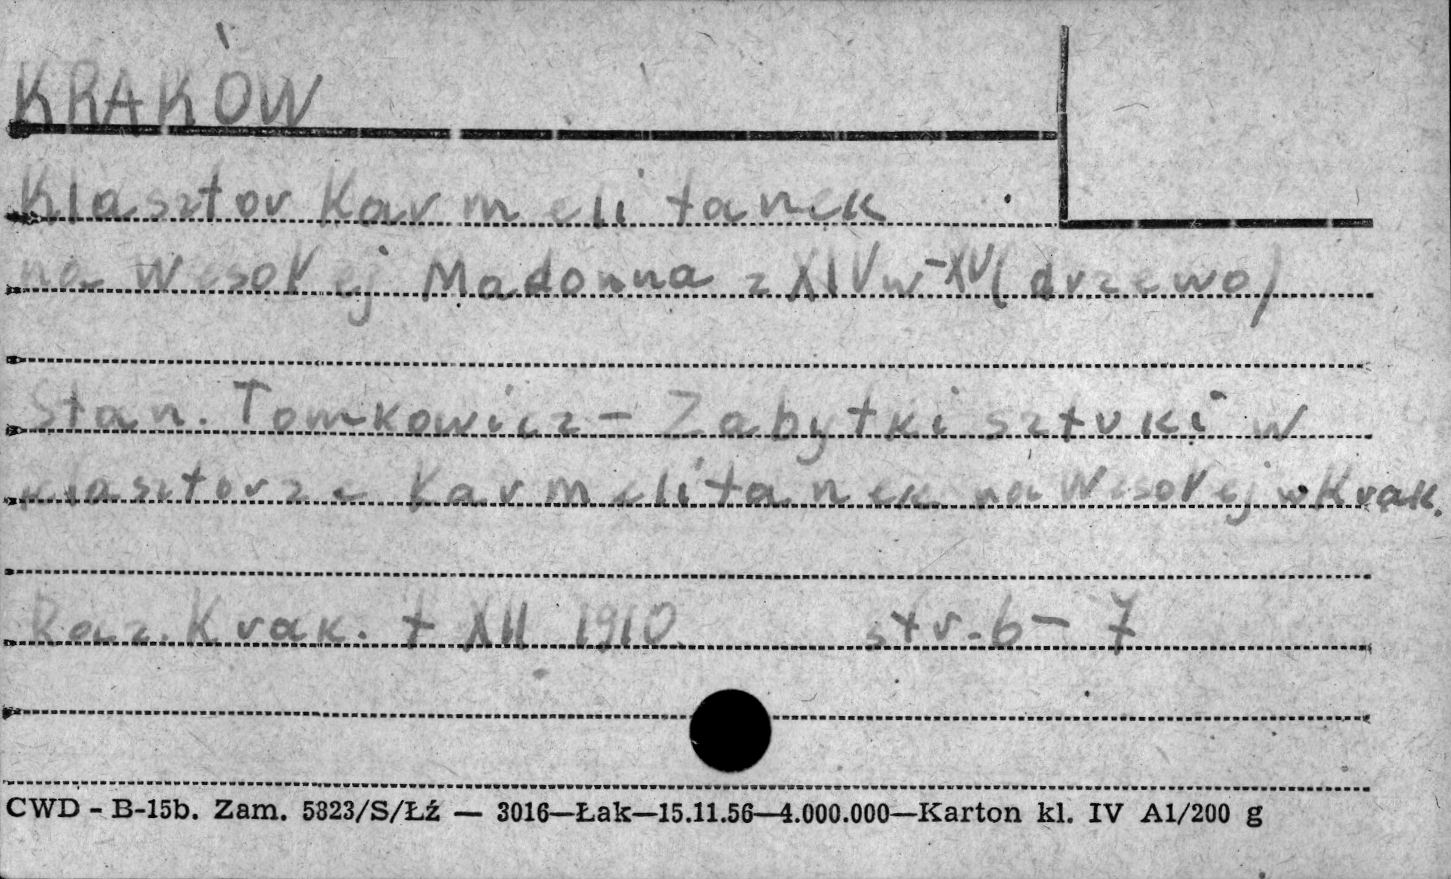 KRAKÓW
Klasztor Karmelitanek
na Wesołej Madonna z XIVw-XV (drzewo)
Stan. Tomkowicz - Zabytki sztuki w
klasztorze Karmelitanek na Wesołej w Krak.
Rocz. Krak. t XII 1910 str. 6-7
CWD - B-15b. Zam. 5823/S/Łź — 3016—Łak—15.11.56—4.000.000—Karton kl. IV A1/200 g